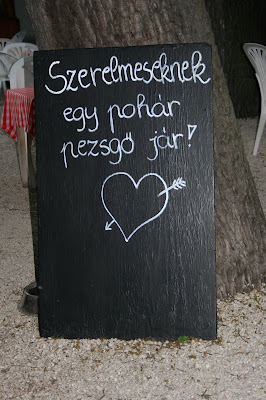 Szerelmeseknek
egy pohár
pezsgő jár!